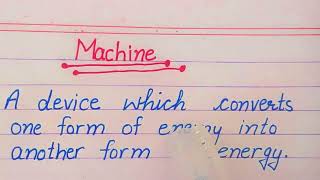 Machine
A device which converts
one form of energy into
another form energy.